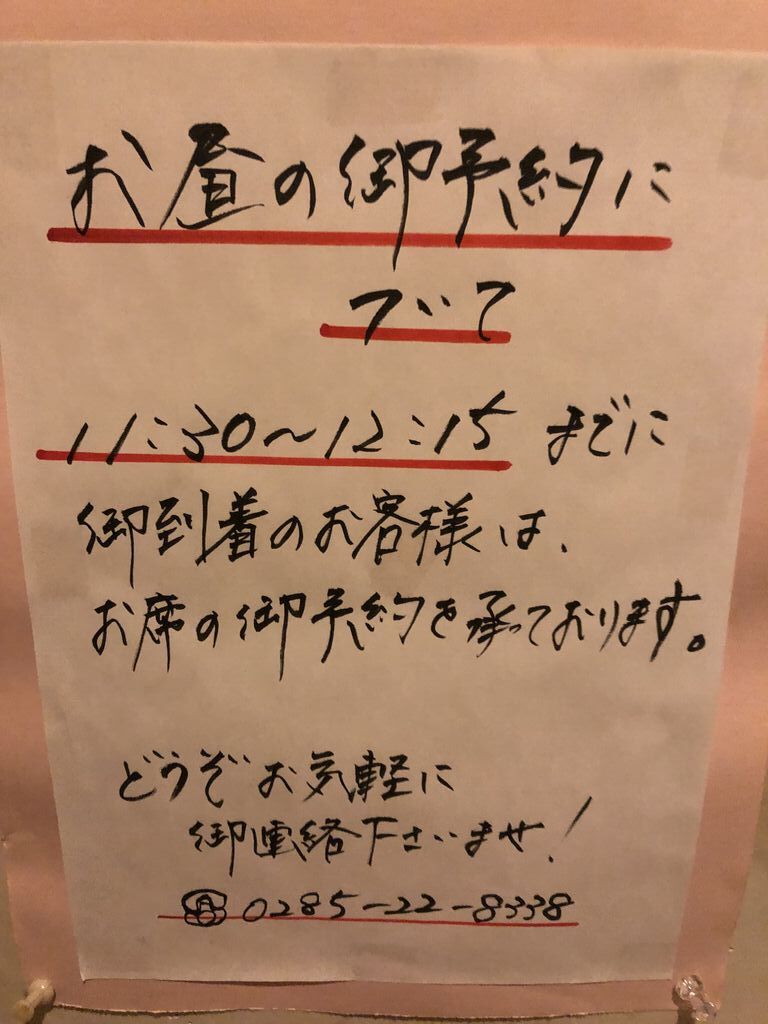 お昼の御予約に
ついて
11:30〜12:15 までに
御到着のお客様は、
お席の御予約を承っております。
どうぞお気軽に
御連絡下さいませ!
☎ 0285-22-8338